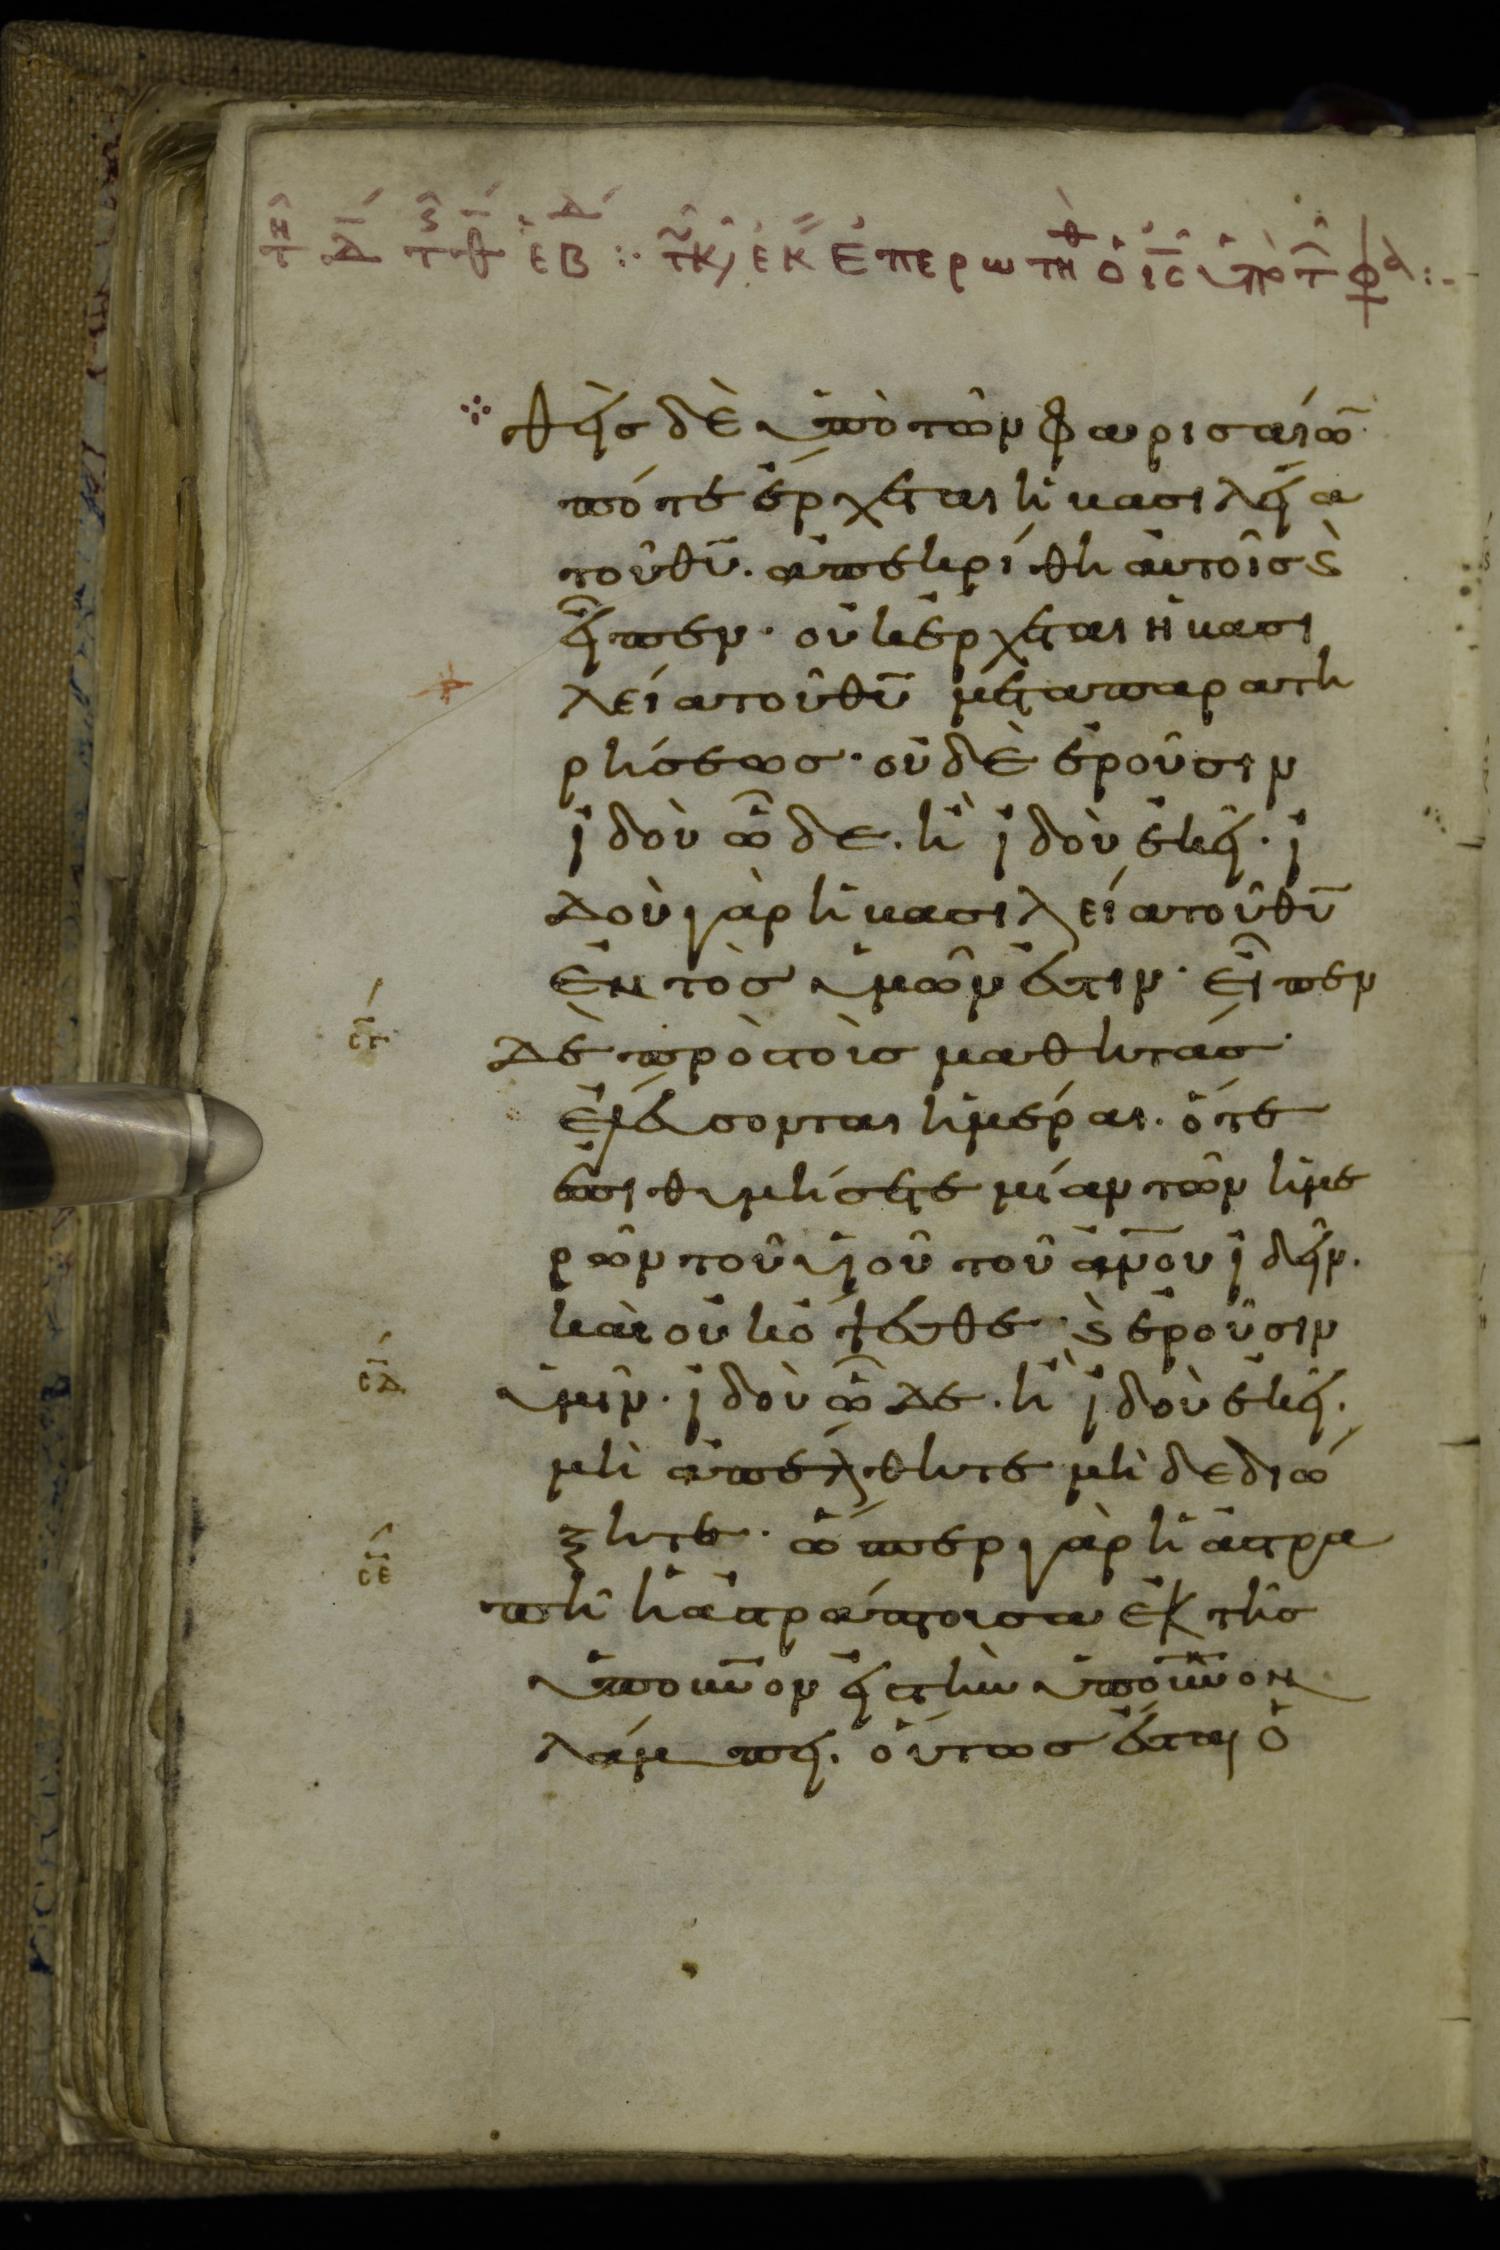 τῆ Δ´ τῆς β´ ἑβδ´ :· τῷ κ, ἐκ´´ Ἐπερωτηθ ὁ ις ὑπὸ τῶ φ :-
θεὶς δὲ ὑπὸ τῶν Φαρισαίω̄
πότε ἔρχεται ἡ βασιλεία
τοῦ θῡ. ἀπεκρίθη αὐτοῖς ϗ
εἶπεν· οὐκ ἔρχεται ἡ βασι
λεία τοῦ θῡ μετὰ παρατη
ρήσεως· οὐδὲ ἐροῦσιν
ἰδοὺ ὧδε. ἢ ἰδοὺ ἐκεῖ· ἰ
δοὺ γὰρ ἡ βασιλεία τοῦ θῡ
ἐντὸς ὑμῶν ἐστιν· εἶπεν
σγ´
δὲ πρὸς τοὺς μαθητάς·
ἐλεύσονται ἡμέραι. ὅτε
ἐπιθυμήσετε μίαν τῶν ἡμε
ρῶν τοῦ υἱοῦ τοῦ ἀν̄ου ἰδεῖν.
καὶ οὐκ ὄψεσθε· ϗ ἐροῦσιν
σδ´
ὑμῖν· ἰδοὺ ὧδε. ἢ ἰδοὺ ἐκεῖ.
μὴ ἀπέλθητε μὴ δὲ διώ
ξητε· ὥσπερ γὰρ ἡ ἀστρα
σε
πὴ ἡ ἀστράπτουσα ἐκ τῆς
ὑπ' οὐν̄ον εἰς τὴν ὑπ' οὐν̄ον
λάμπει. οὕτως ἔσται ὁ